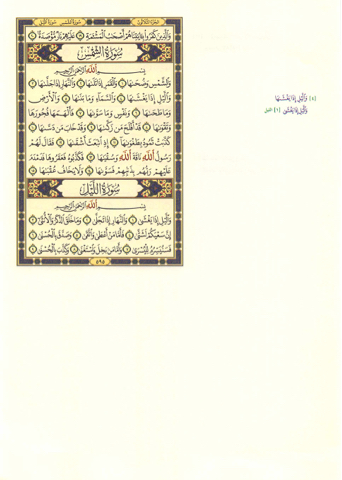 الجزء الثلاثون سورة الشمس سورة الليل
وَالَّذِينَ كَفَرُوا بِآيَاتِنَا هُمْ أَصْحَابُ الْمَشْأَمَةِ ١٩ عَلَيْهِمْ نَارٌ مُؤْصَدَةٌ ٢٠
سُورَةُ الشَّمْسِ
بِسْمِ اللَّهِ الرَّحْمَٰنِ الرَّحِيمِ
وَالشَّمْسِ وَضُحَاهَا ١ وَالْقَمَرِ إِذَا تَلَاهَا ٢ وَالنَّهَارِ إِذَا جَلَّاهَا ٣
وَاللَّيْلِ إِذَا يَغْشَاهَا ٤ وَالسَّمَاءِ وَمَا بَنَاهَا ٥ وَالْأَرْضِ
وَمَا طَحَاهَا ٦ وَنَفْسٍ وَمَا سَوَّاهَا ٧ فَأَلْهَمَهَا فُجُورَهَا
وَتَقْوَاهَا ٨ قَدْ أَفْلَحَ مَنْ زَكَّاهَا ٩ وَقَدْ خَابَ مَنْ دَسَّاهَا ١٠
كَذَّبَتْ ثَمُودُ بِطَغْوَاهَا ١١ إِذِ انْبَعَثَ أَشْقَاهَا ١٢ فَقَالَ لَهُمْ
رَسُولُ اللَّهِ نَاقَةَ اللَّهِ وَسُقْيَاهَا ١٣ فَكَذَّبُوهُ فَعَقَرُوهَا فَدَمْدَمَ
عَلَيْهِمْ رَبُّهُمْ بِذَنْبِهِمْ فَسَوَّاهَا ١٤ وَلَا يَخَافُ عُقْبَاهَا ١٥
سُورَةُ اللَّيْلِ
بِسْمِ اللَّهِ الرَّحْمَٰنِ الرَّحِيمِ
وَاللَّيْلِ إِذَا يَغْشَى ١ وَالنَّهَارِ إِذَا تَجَلَّى ٢ وَمَا خَلَقَ الذَّكَرَ وَالْأُنْثَى ٣
إِنَّ سَعْيَكُمْ لَشَتَّى ٤ فَأَمَّا مَنْ أَعْطَى وَاتَّقَى ٥ وَصَدَّقَ بِالْحُسْنَى ٦
فَسَنُيَسِّرُهُ لِلْيُسْرَى ٧ وَأَمَّا مَنْ بَخِلَ وَاسْتَغْنَى ٨ وَكَذَّبَ بِالْحُسْنَى ٩
٥٩٥
[٤] وَاللَّيْلِ إِذَا يَغْشَاهَا
وَاللَّيْلِ إِذَا يَغْشَى